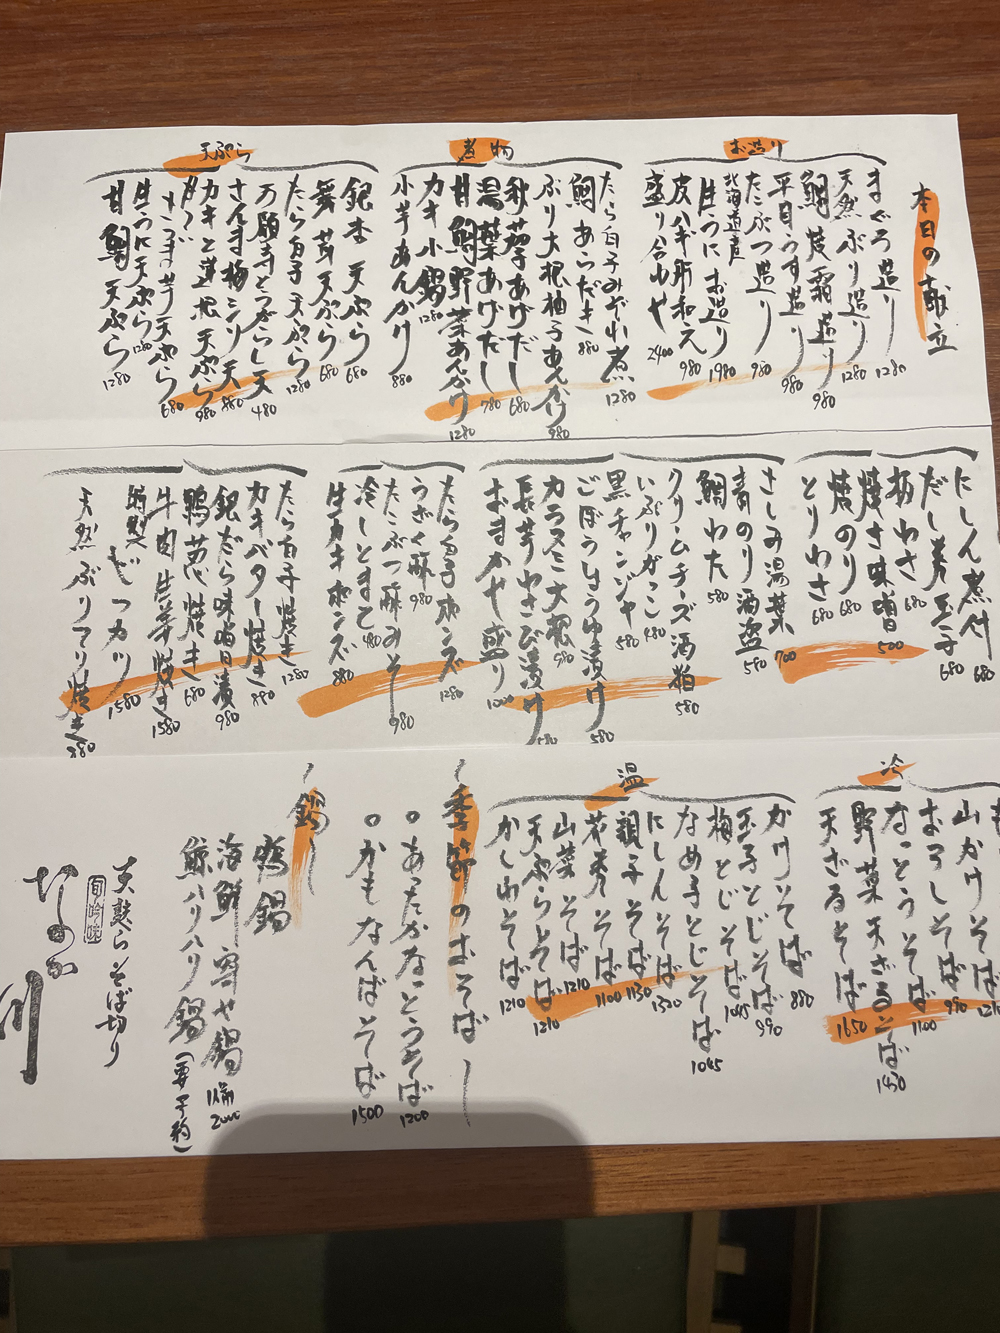 本日の献立
お造り
まぐろ造り 1280
天然ぶり造り 1280
鯛皮霜造り 980
平目うす造り 980
たこぶつ造り 980
北海道産
生うにお造り 1980
皮ハギ肝和え 980
盛り合わせ 2400
煮物
たら白子みぞれ煮 1280
鯛あらだき 880
ぶり大根柚子あんかけ 980
秋茄子あげだし 680
湯葉あげだし 780
甘鯛野菜あんかけ 1280
カキ小鍋 1280
小芋あんかけ 880
天ぷら
銀杏天ぷら 680
舞茸天ぷら 680
たら白子天ぷら 1280
万願寺とうがらし天 480
さんま梅シソ天 880
カキと蓮根天ぷら 980
さつま芋天ぷら 680
生うに天ぷら 1280
甘鯛天ぷら 1280
にしん煮付 680
だし巻玉子 680
板わさ 680
焼き味噌 500
焼のり 680
とりわさ 680
さしみ湯葉 700
青のり酒盗 580
鯛わた 580
クリームチーズ酒粕 580
いぶりがっこ 480
黒チャンジャ 580
ごぼうしょうゆ漬け 580
カラスミ大根 980
長芋わさび漬け 580
おまかせ盛り 1000
たら白子ポンズ 1280
うざく酢 980
たこぶつ酢みそ 980
冷しとまと 480
生カキポンズ 880
たら白子焼き 1280
カキバター焼き 880
銀だら味噌漬 980
鴨葱焼き 680
牛肉生姜焼き 1580
特製
ビフカツ 1580
天然ぶりてり焼き
冷
山かけそば 1210
おろしそば 990
なっとうそば 1100
野菜天ざるそば 1430
天ざるそば 1650
温
かけそば 880
玉子とじそば 990
梅とじそば 1045
なめ子とじそば 1045
にしんそば 1320
親子そば 1130
花巻そば 1100
山菜そば 1210
天ぷらそば 1210
かしわそば 1210
季節のおそば
あったかなっとうそば 1200
かもなんばそば 1500
鍋
鴨鍋
海鮮寄せ鍋 1人前 2000
鯨ハリハリ鍋 (要予約)
天麩らそば切り
旬吟味
なかの川